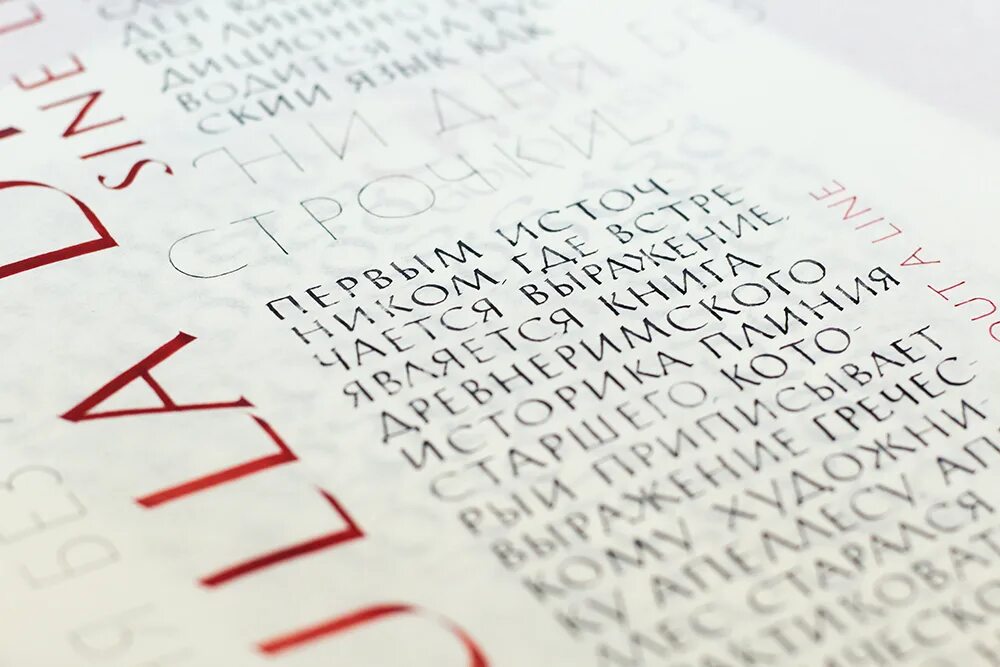 ДЕН КАК
БЕЗ ЛИНИИ
ДИЦИОННО
ВОДИТСЯ НА РУС
СКИЙ ЯЗЫК КАК
НИ ДНЯ БЕЗ
СТРОЧКИ
ПЕРВЫМ ИСТОЧ-
НИКОМ, ГДЕ ВСТРЕ
ЧАЕТСЯ ВЫРАЖЕНИЕ,
ЯВЛЯЕТСЯ КНИГА
ДРЕВНЕРИМСКОГО
ИСТОРИКА ПЛИНИЯ
СТАРШЕГО, КОТО-
РЫЙ ПРИПИСЫВАЕТ
ВЫРАЖЕНИЕ ГРЕЧЕС-
КОМУ ХУДОЖНИ-
КУ АПЕЛЛЕСУ. АП
ЛЛЕС СТАРАЛСЯ
РАКТИКОВАТ
ИЧЕСКО
SINE L
DIE
ULLA
OUT A LINE
БЕЗ